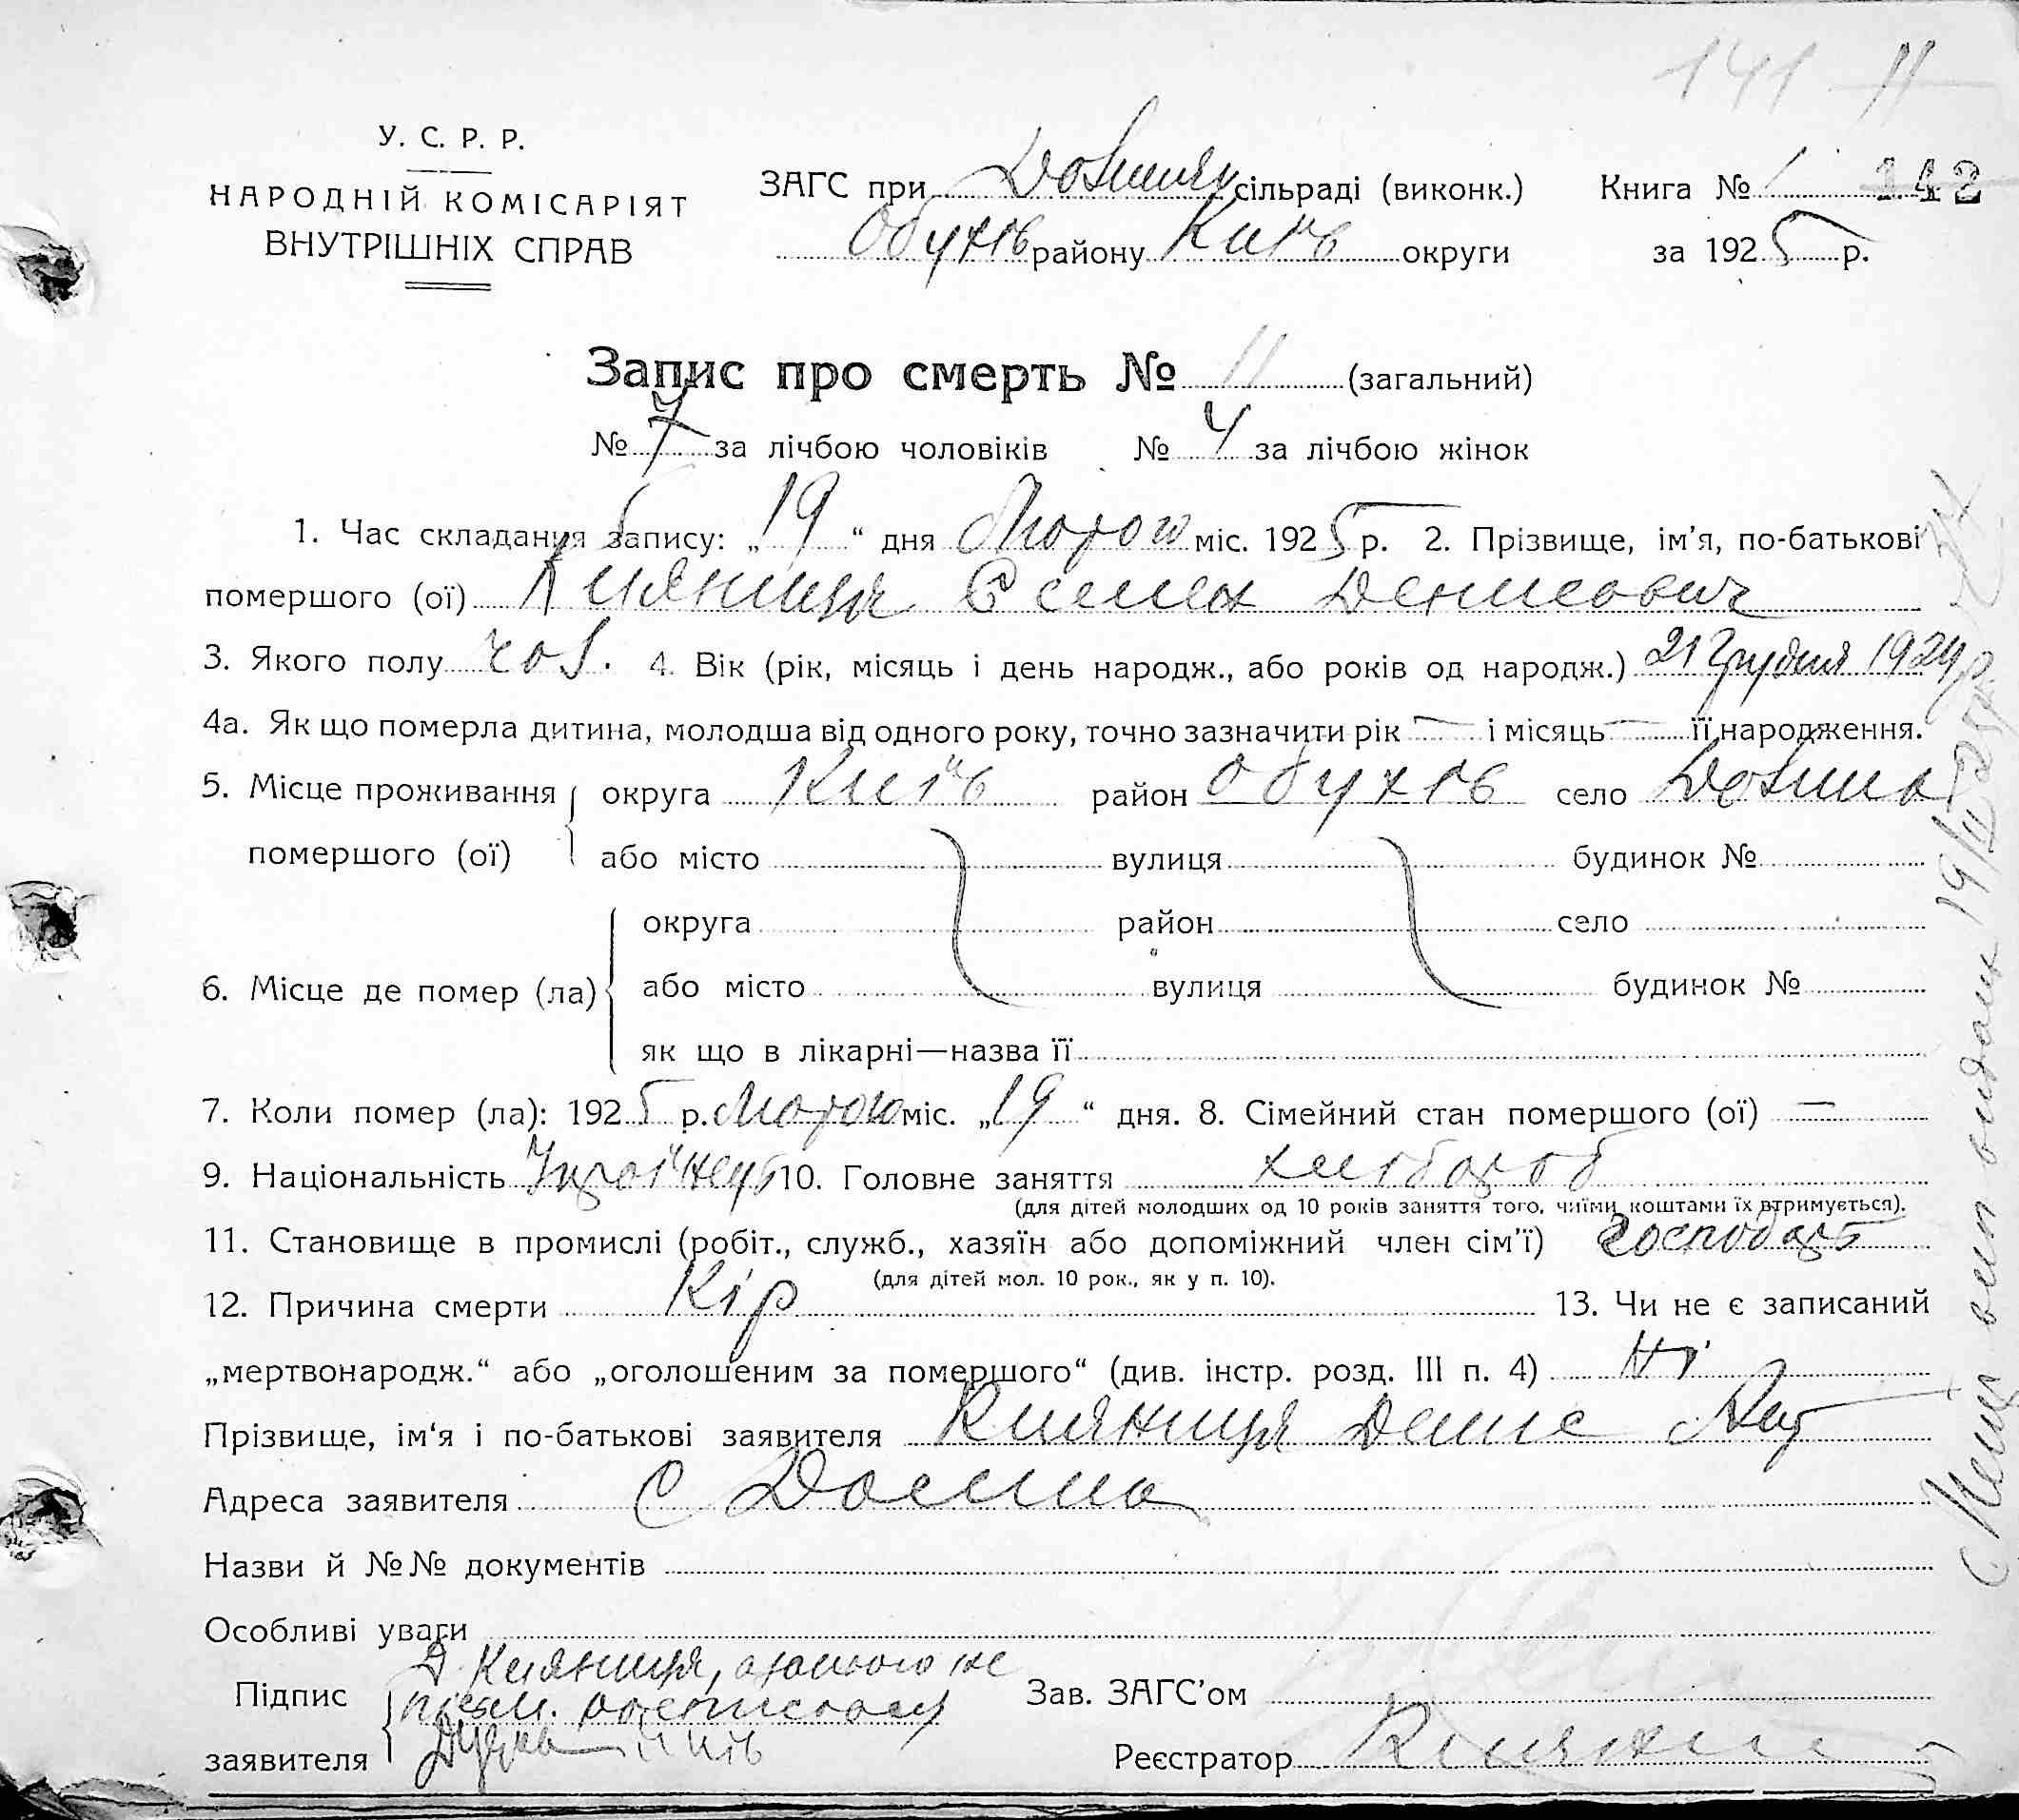 141 11
У. С. Р. Р.
НАРОДНІЙ КОМІСАРІЯТ
ВНУТРІШНІХ СПРАВ
ЗАГС при Долинян сільраді (виконк.) Книга № 1 142
Обухів району Київ округи за 1925 р.
Запис про смерть № 11 (загальний)
№ 7 за лічбою чоловіків № 4 за лічбою жінок
1. Час складання запису: „19“ дня Лютого міс. 1925 р. 2. Прізвище, ім’я, по-батькові
помершого (ої) Кияниця Семен Денисович
3. Якого полу чол. 4. Вік (рік, місяць і день народж., або років од народж.) 21 Грудня 1924 р
4а. Як що померла дитина, молодша від одного року, точно зазначити рік — і місяць — її народження.
5. Місце проживання помершого (ої) округа Київ район Обухів село Долина
або місто вулиця будинок №
6. Місце де помер (ла) округа район село
або місто вулиця будинок №
як що в лікарні—назва її
7. Коли помер (ла): 1925 р. Лютого міс. „19“ дня. 8. Сімейний стан помершого (ої) —
9. Національність Українець 10. Головне заняття хлібороб
(для дітей молодших од 10 років заняття того, чиїми коштами їх втримується).
11. Становище в промислі (робіт., служб., хазяїн або допоміжний член сім’ї) господарь
(для дітей мол. 10 рок., як у п. 10).
12. Причина смерти Кір 13. Чи не є записаний
„мертвонародж.“ або „оголошеним за помершого“ (див. інстр. розд. III п. 4) Ні
Прізвище, ім‘я і по-батькові заявителя Кияниця Денис
Адреса заявителя с Долина
Назви й №№ документів
Особливі уваги
Підпис заявителя Д Кияниця, а за нього не
письм. росписався
Зав. ЗАГС’ом
Реєстратор
вип видано 19/II 25 р